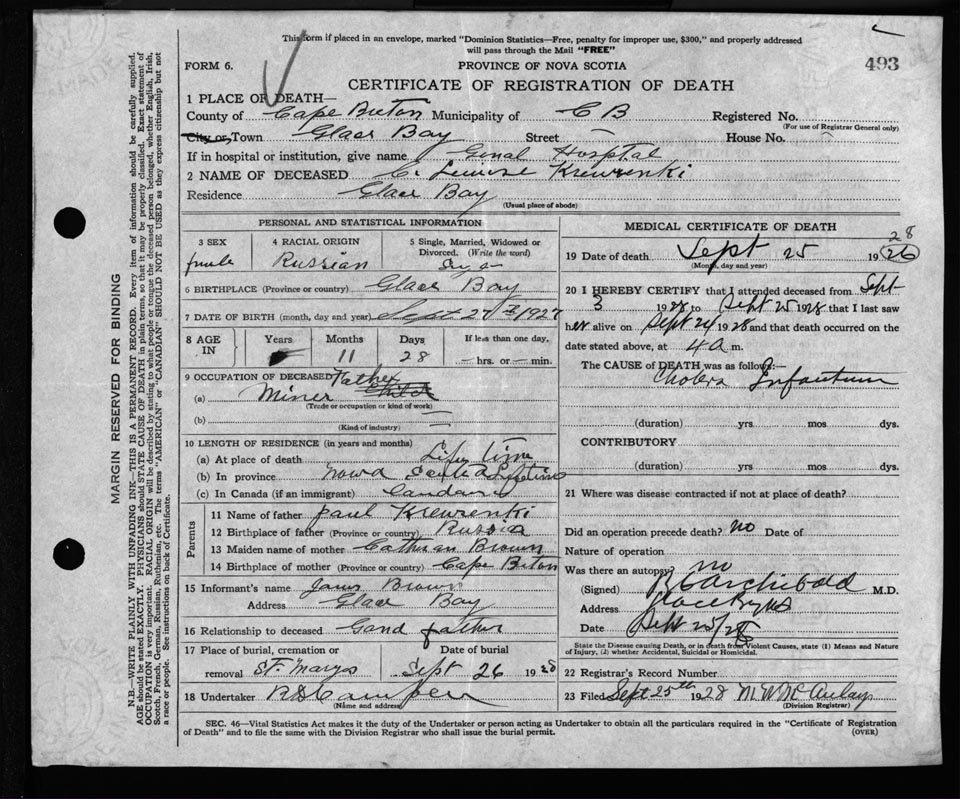 This form if placed in an envelope, marked "Dominion Statistics—Free, penalty for improper use, $300," and properly addressed
will pass through the Mail "FREE"
FORM 6.
PROVINCE OF NOVA SCOTIA
493
CERTIFICATE OF REGISTRATION OF DEATH
1 PLACE OF DEATH—
County of Cape Breton Municipality of C B Registered No.
(For use of Registrar General only)
City or Town Glace Bay Street — House No.
If in hospital or institution, give name Genal Hospital
2 NAME OF DECEASED C. Lewise Krewrenki
Residence Glace Bay
(Usual place of abode)
PERSONAL AND STATISTICAL INFORMATION
3 SEX
4 RACIAL ORIGIN
5 Single, Married, Widowed or Divorced. (Write the word)
Russian
6 BIRTHPLACE (Province or country) Glace Bay
7 DATE OF BIRTH (month, day and year) Sept 27th 1927
8 AGE IN
Years
Months
Days
If less than one day,
11
28
— hrs. or — min.
9 OCCUPATION OF DECEASED Father
(a) Miner Child
(Trade or occupation or kind of work)
(b) —
(Kind of industry)
10 LENGTH OF RESIDENCE (in years and months)
(a) At place of death Life time
(b) In province Nova Scotia Lifetime
(c) In Canada (if an immigrant)
Parents
11 Name of father Paul Krewrenki
12 Birthplace of father (Province or country) Russia
13 Maiden name of mother Catheran Brown
14 Birthplace of mother (Province or country) Cape Breton
15 Informant's name James Brown
Address Glace Bay
16 Relationship to deceased Gand father
17 Place of burial, cremation or removal St. Marys
Date of burial
Sept 26 1928
18 Undertaker
(Name and address)
MEDICAL CERTIFICATE OF DEATH
19 Date of death Sept 25 1926 28
(Month, day and year)
20 I HEREBY CERTIFY that I attended deceased from Sept
3 1928 to Sept 25 1928 that I last saw
her alive on Sept 24 1928 and that death occurred on the
date stated above, at 4 a m.
The CAUSE of DEATH was as follows:—
Cholera Infantum
(duration) yrs mos dys.
CONTRIBUTORY
(duration) yrs. mos dys.
21 Where was disease contracted if not at place of death?
Did an operation precede death? no Date of
Nature of operation
Was there an autopsy? no
(Signed) Archibald M.D.
Address Glace Bay NS
Date Sept 25/28
State the Disease causing Death, or in death from Violent Causes, state (1) Means and Nature
of Injury, (2) whether Accidental, Suicidal or Homicidal.
22 Registrar's Record Number
23 Filed Sept 25th 1928
(Division Registrar)
SEC. 46—Vital Statistics Act makes it the duty of the Undertaker or person acting as Undertaker to obtain all the particulars required in the "Certificate of Registration
of Death" and to file the same with the Division Registrar who shall issue the burial permit.
(OVER)
MARGIN RESERVED FOR BINDING
N.B.—WRITE PLAINLY WITH UNFADING INK—THIS IS A PERMANENT RECORD. Every item of information should be carefully supplied.
AGE should be stated EXACTLY. PHYSICIANS should STATE CAUSE OF DEATH in plain terms, so that it may be properly classified. Exact statement of
OCCUPATION is very important. RACIAL ORIGIN will be described by stating to what people or tongue the deceased person belonged, whether English, Irish,
Scotch, French, German, Russian, Ruthenian, etc. The terms "AMERICAN" or "CANADIAN" SHOULD NOT BE USED as they express citizenship but not
a race or people. See instructions on back of Certificate.